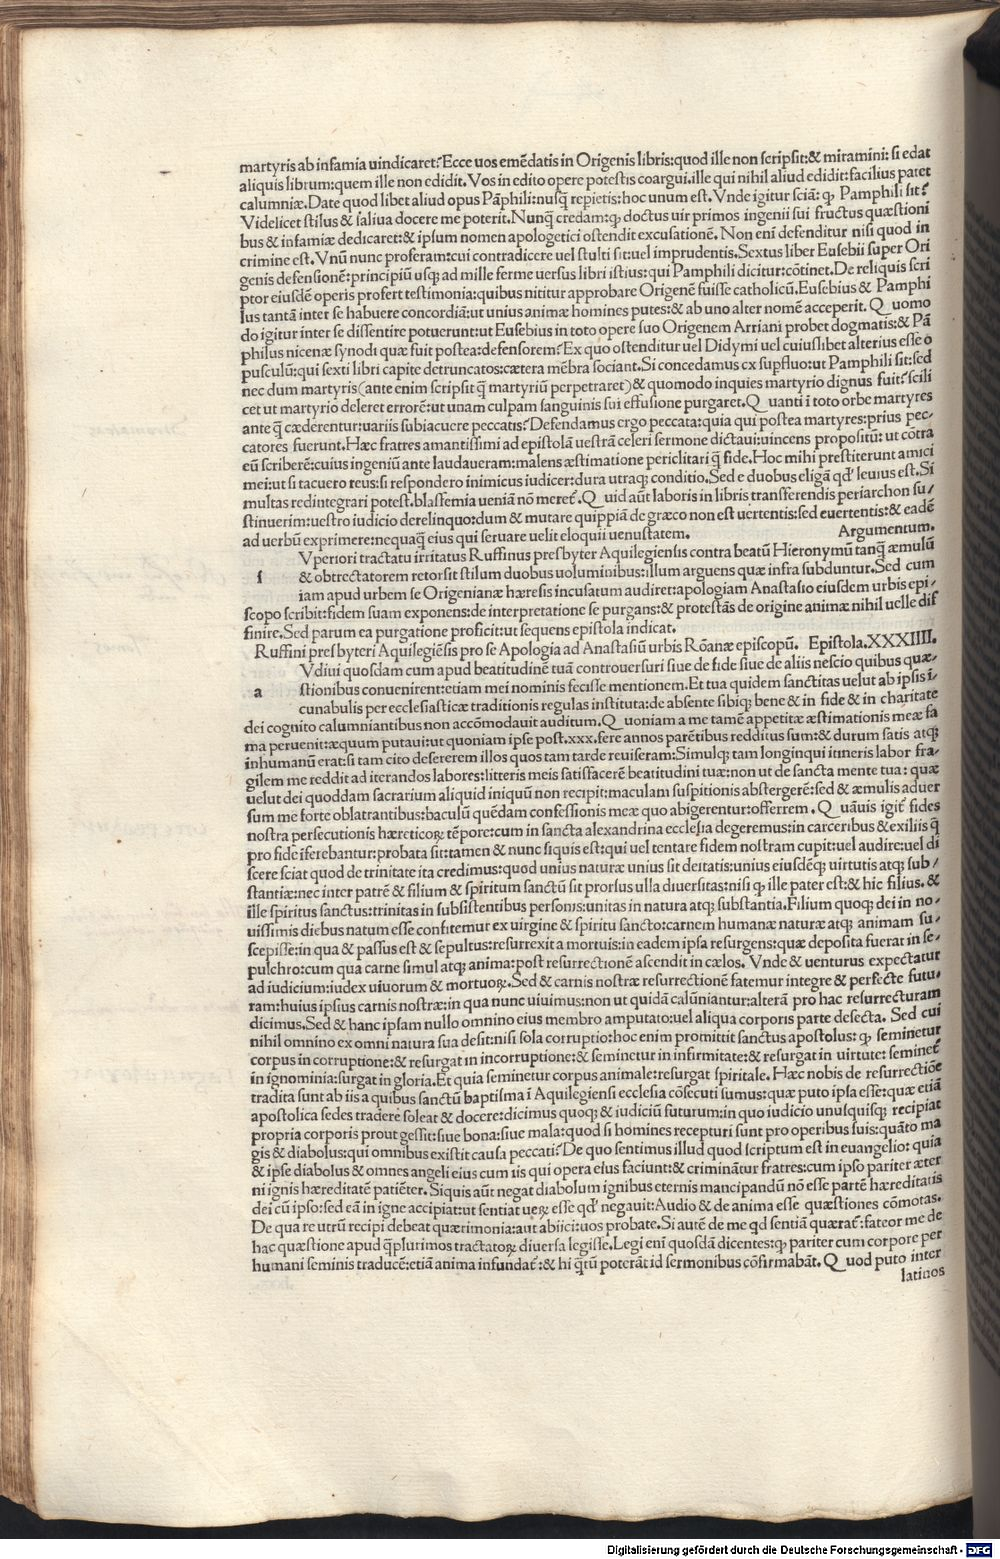 martyris ab infamia uindicaret?Ecce uos emēdatis in Origenis libris:quod ille non scripsit:& miramini: si edat
aliquis librum:quem ille non edidit. Vos in edito opere potestis coargui.ille qui nihil aliud edidit:facilius patet
calumniæ.Date quod libet aliud opus Pāphili:nusꝗ̄ repietis:hoc unum est. Vnde igitur sciā: ꝙ Pamphili sit?
Videlicet stilus & saliua docere me poterit.Nunꝗ̄ credam:ꝙ doctus uir primos ingenii sui fructus quæstioni
bus & infamiæ dedicaret:& ipsum nomen apologetici ostendit excusationē. Non enī defenditur nisi quod in
crimine est. Vnū nunc proferam:cui contradicere uel stulti sit:uel imprudentis.Sextus liber Eusebii super Ori
genis defensionē:principiū usꝗ ad mille ferme uersus libri istius:qui Pamphili dicitur:cōtinet.De reliquis scri
ptor eiusdē operis profert testimonia:quibus nititur approbare Origenē fuisse catholicū.Eusebius & Pamphi
lus tantā inter se habuere concordiā:ut unius animæ homines putes:& ab uno alter nomē acceperit. Q uomo
do igitur inter se dissentire potuerunt:ut Eusebius in toto opere suo Origenem Arriani probet dogmatis:& Pā
philus nicenæ synodi quæ fuit postea:defensorem?Ex quo ostenditur uel Didymi uel cuiuslibet alterius esse o
pusculū:qui sexti libri capite detruncatos:cætera mēbra sociant.Si concedamus ex supfluo:ut Pamphili sit:sed
nec dum martyris(ante enim scripsit ꝗ̄ martyriū perpetraret)& quomodo inquies martyrio dignus fuit?scili
cet ut martyrio deleret errorē:ut unam culpam sanguinis sui effusione purgaret.Q uanti ī toto orbe martyres
ante ꝗ̄ cæderentur:uariis subiacuere peccatis?Defendamus ergo peccata:quia qui postea martyres:prius pec-
catores fuerunt.Hæc fratres amantissimi ad epistolā uestrā celeri sermone dictaui:uincens propositū: ut cōtra
eū scriberē:cuius ingeniū ante laudaueram:malens æstimatione periclitari ꝗ̄ fide.Hoc mihi prestiterunt amici
mei:ut si tacuero reus:si respondero inimicus iudicer:dura utraꝗ conditio.Sed e duobus eligā qd' leuius est.Si
multas redintegrari potest.blasfemia ueniā nō meret̄.Q uid aūt laboris in libris transferendis periarchon su/
stinuerim:uestro iudicio derelinquo:dum & mutare quippiā de græco non est uertentis:sed euertentis:& eadē
ad uerbū exprimere:nequaꝗ̄ eius qui seruare uelit eloquii uenustatem. Argumentum.
s Vperiori tractatu irritatus Ruffinus presbyter Aquilegiensis contra beatū Hieronymū tanꝗ̄ æmulū
& obtrectatorem retorsit stilum duobus uoluminibus:illum arguens quæ infra subduntur.Sed cum
iam apud urbem se Origenianæ hæresis incusatum audiret:apologiam Anastasio eiusdem urbis epi-
scopo scribit:fidem suam exponens:de interpretatione se purgans:& protestās de origine animæ nihil uelle dif
finire.Sed parum ea purgatione proficit:ut sequens epistola indicat.
Ruffini presbyteri Aquilegiēsis pro se Apologia ad Anastasiū urbis Rōanæ episcopū. Epistola.XXXIIII.
a Vdiui quosdam cum apud beatitudinē tuā controuersuri siue de fide siue de aliis nescio quibus quæ-
stionibus conuenirent:etiam mei nominis fecisse mentionem.Et tua quidem sanctitas uelut ab ipsis ī-
cunabulis per ecclesiasticæ traditionis regulas instituta:de absente sibiꝗ bene & in fide & in charitate
dei cognito calumniantibus non accōmodauit auditum.Q uoniam a me tamē appetitæ æstimationis meæ fa
ma peruenit:æquum putaui:ut quoniam ipse post.xxx.fere annos parētibus redditus sum:& durum satis atꝗ
inhumanū erat:si tam cito desererem illos quos tam tarde reuiseram:Simulꝗ tam longinqui itineris labor fra-
gilem me reddit ad iterandos labores:litteris meis satisfacerē beatitudini tuæ:non ut de sancta mente tua: quæ
uelut dei quoddam sacrarium aliquid iniquū non recipit:maculam suspitionis abstergerē:sed & æmulis aduer
sum me forte oblatrantibus:baculū quēdam confessionis meæ quo abigerentur:offerrem.Q uāuis igit̄ fides
nostra persecutionis hæreticoꝝ tēpore:cum in sancta alexandrina ecclesia degeremus:in carceribus & exiliis ꝗ̄
pro fide īferebantur:probata sit:tamen & nunc siquis est:qui uel tentare fidem nostram cupit:uel audire:uel di
scere sciat quod de trinitate ita credimus:quod unius naturæ unius sit deitatis:unius eiusdēꝗ uirtutis atꝗ sub/
stantiæ:nec inter patrē & filium & spiritum sanctū sit prorsus ulla diuersitas:nisi ꝙ ille pater est:& hic filius. &
ille spiritus sanctus:trinitas in subsistentibus personis:unitas in natura atꝗ substantia.Filium quoꝗ dei in no-
uissimis diebus natum esse confitemur ex uirgine & spiritu sancto:carnem humanæ naturæ atꝗ animam su-
scepisse:in qua & passus est & sepultus:resurrexit a mortuis:in eadem ipsa resurgens:quæ deposita fuerat in se-
pulchro:cum qua carne simul atꝗ anima:post resurrectionē ascendit in cælos. Vnde & uenturus expectatur
ad iudicium:iudex uiuorum & mortuoꝝ.Sed & carnis nostræ resurrectionē fatemur integre & perfecte futu-
ram:huius ipsius carnis nostræ:in qua nunc uiuimus:non ut quidā calūniantur:alterā pro hac resurrecturam
dicimus.Sed & hanc ipsam nullo omnino eius membro amputato:uel aliqua corporis parte desecta. Sed cui
nihil omnino ex omni natura sua desit:nisi sola corruptio:hoc enim promittit sanctus apostolus: ꝙ seminetur
corpus in corruptione:& resurgat in incorruptione:& seminetur in infirmitate:& resurgat in uirtute: seminet̄
in ignominia:surgat in gloria.Et quia seminetur corpus animale:resurgat spiritale. Hæc nobis de resurrectiōe
tradita sunt ab iis a quibus sanctū baptisma ī Aquilegiensi ecclesia cōsecuti sumus:quæ puto ipsa esse:quæ etiā
apostolica sedes tradere soleat & docere:dicimus quoꝗ & iudiciū futurum:in quo iudicio unusquisꝗ recipiat
propria corporis prout gessit:siue bona:siue mala:quod si homines recepturi sunt pro operibus suis:quāto ma
gis & diabolus:qui omnibus existit causa peccati?De quo sentimus illud quod scriptum est in euangelio: quia
& ipse diabolus & omnes angeli eius cum iis qui opera eius faciunt:& criminātur fratres:cum ipso pariter æter
ni ignis hæreditatē patiēter.Siquis aūt negat diabolum ignibus eternis mancipandū nō esse partē hæreditatis
dei cū ipso:sed eā in igne accipiat:ut sentiat ueꝝ esse qd' negauit:Audio & de anima esse quæstiones cōmotas.
De qua re utrū recipi debeat quærimonia:aut abiici:uos probate.Si autē de me qd sentiā quærat̄:fateor me de
hac quæstione apud ꝗ̄plurimos tractatoꝝ diuersa legisse.Legi enī quosdā dicentes:ꝙ pariter cum corpore per
humani seminis traducē:etiā anima infundat̄:& hi ꝗ̄tū poterāt id sermonibus cōfirmabāt. Q uod puto inter
latinos
Digitalisierung gefördert durch die Deutsche Forschungsgemeinschaft - DFG